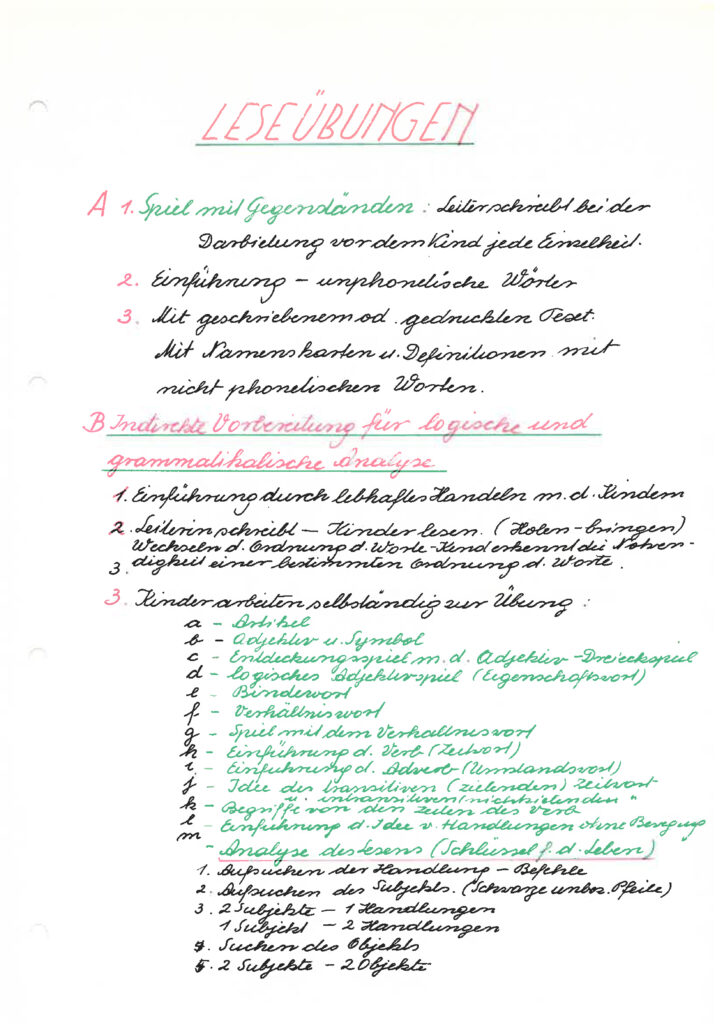 LESEÜBUNGEN
A 1. Spiel mit Gegenständen : Leiter schreibt bei der
Darbietung vor dem Kind jede Einzelheit.
2. Einführung – unphonetische Wörter
3. Mit geschriebenem od. gedruckten Text.
Mit Namenskarten u. Definitionen mit
nicht phonetischen Worten.
B Indirekte Vorbereitung für logische und
grammatikalische Analyse
1. Einführung durch lebhaftes Handeln m. d. Kindern
2. Leiterin schreibt – Kinder lesen. (Holen – bringen)
Wechseln d. Ordnung d. Worte – Kind erkennt die Notwen-
3. digkeit einer bestimmten Ordnung d. Worte.
3. Kinder arbeiten selbständig zur Übung :
a – Artikel
b – Adjektiv u. Symbol
c – Entdeckungsspiel m. d. Adjektiv – Dreieckspiel
d – logisches Adjektivspiel (Eigenschaftswort)
e – Bindewort
f – Verhältniswort
g – Spiel mit dem Verhältniswort
h – Einführung d. Verb (Zeitwort)
i – Einführung d. Adverb (Umstandswort)
j – Idee des transitiven (zielenden) Zeitwort
u. intransitiven (nichtzielenden "
k – Begriffe von den Zeiten des Verb
l – Einführung d. Idee v. Handlungen ohne Bewegung
m – Analyse des Lesens (Schlüssel f. d. Leben)
1. Aufsuchen der Handlung – Befehle
2. Aufsuchen des Subjekts. (Schwarze unbez. Pfeile)
3. 2 Subjekte – 1 Handlungen
1 Subjekt – 2 Handlungen
4. Suchen des Objekts
5. 2 Subjekte – 2 Objekte